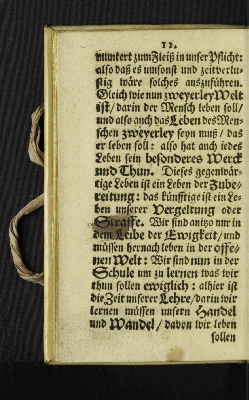 12.
muntert zum Fleiß in unser Pflicht:
also daß es umsonst und zeitverlu-
stig wäre solches auszuführen.
Gleich wie nun zweyerley Welt
ist/ darin der Mensch leben soll/
und also auch das Leben des Men-
schen zweyerley seyn muß/ das
er leben soll: also hat auch jedes
Leben sein besonderes Werck
und Thun. Dieses gegenwär-
tige Leben ist ein Leben der Zube-
reitung: das künfftige ist ein Le-
ben unserer Vergeltung oder
Straffe. Wir sind anitzo nur in
dem Leibe der Ewigkeit/ und
müssen hernach leben in der offe-
nen Welt: Wir sind nun in der
Schule um zu lernen was wir
thun sollen ewiglich: alhier ist
die Zeit unserer Lehre/ darin wir
lernen müssen unsern Handel
und Wandel/ davon wir leben
sollen